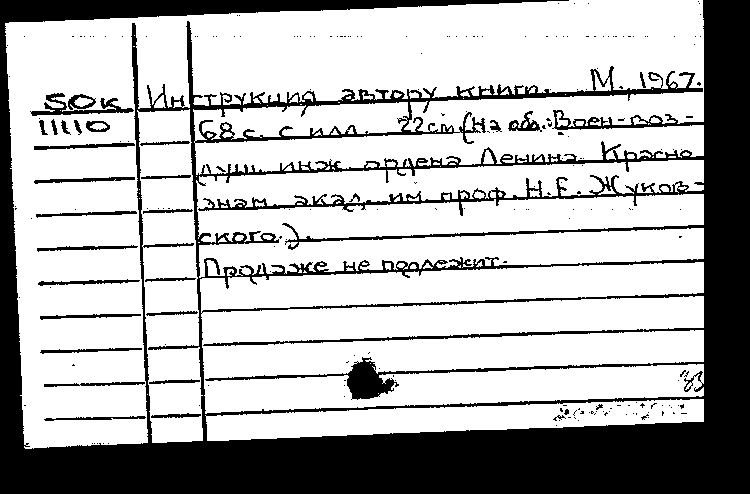 SOK Инструкция автору книги. М., 1967.
11110 68 с. с илл. 22 см. (На обл.: Воен-воз-
душ. инж. ордена Ленина Красно
знам. акад. им. проф. Н.Е. Жуков-
ского).
Продаже не подлежит.
33